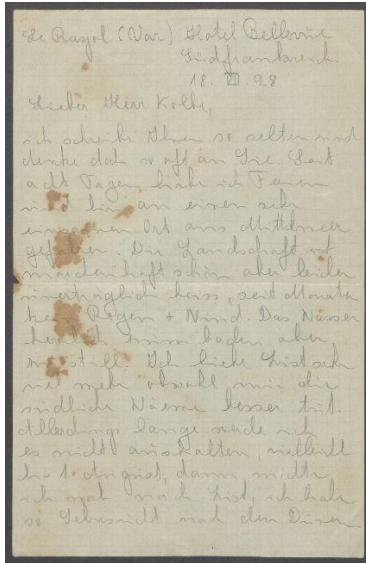 Le Rayol (Var) Hotel Bellevue
Südfrankreich.
18. VII. 28
Lieber Herr Kolbe,
ich schreibe Ihnen so selten und
denke doch so oft an Sie. Seit
acht Tagen habe ich Ferien
und bin an einen sehr
einsamen Ort ans Mittelmeer
gefahren. Die Landschaft ist
märchenhaft schön aber leider
unerträglich heiss, seit Monaten
kein Regen + Wind. Das Wasser
herrlich zum baden aber
zu still. Ich liebe List sehr
viel mehr obwohl mir die
südliche Wärme besser tut.
Allerdings lange werde ich
es nicht aushalten, vielleicht
bis 1. August, dann möchte
ich noch nach List, ich habe
so Sehnsucht nach den Dünen